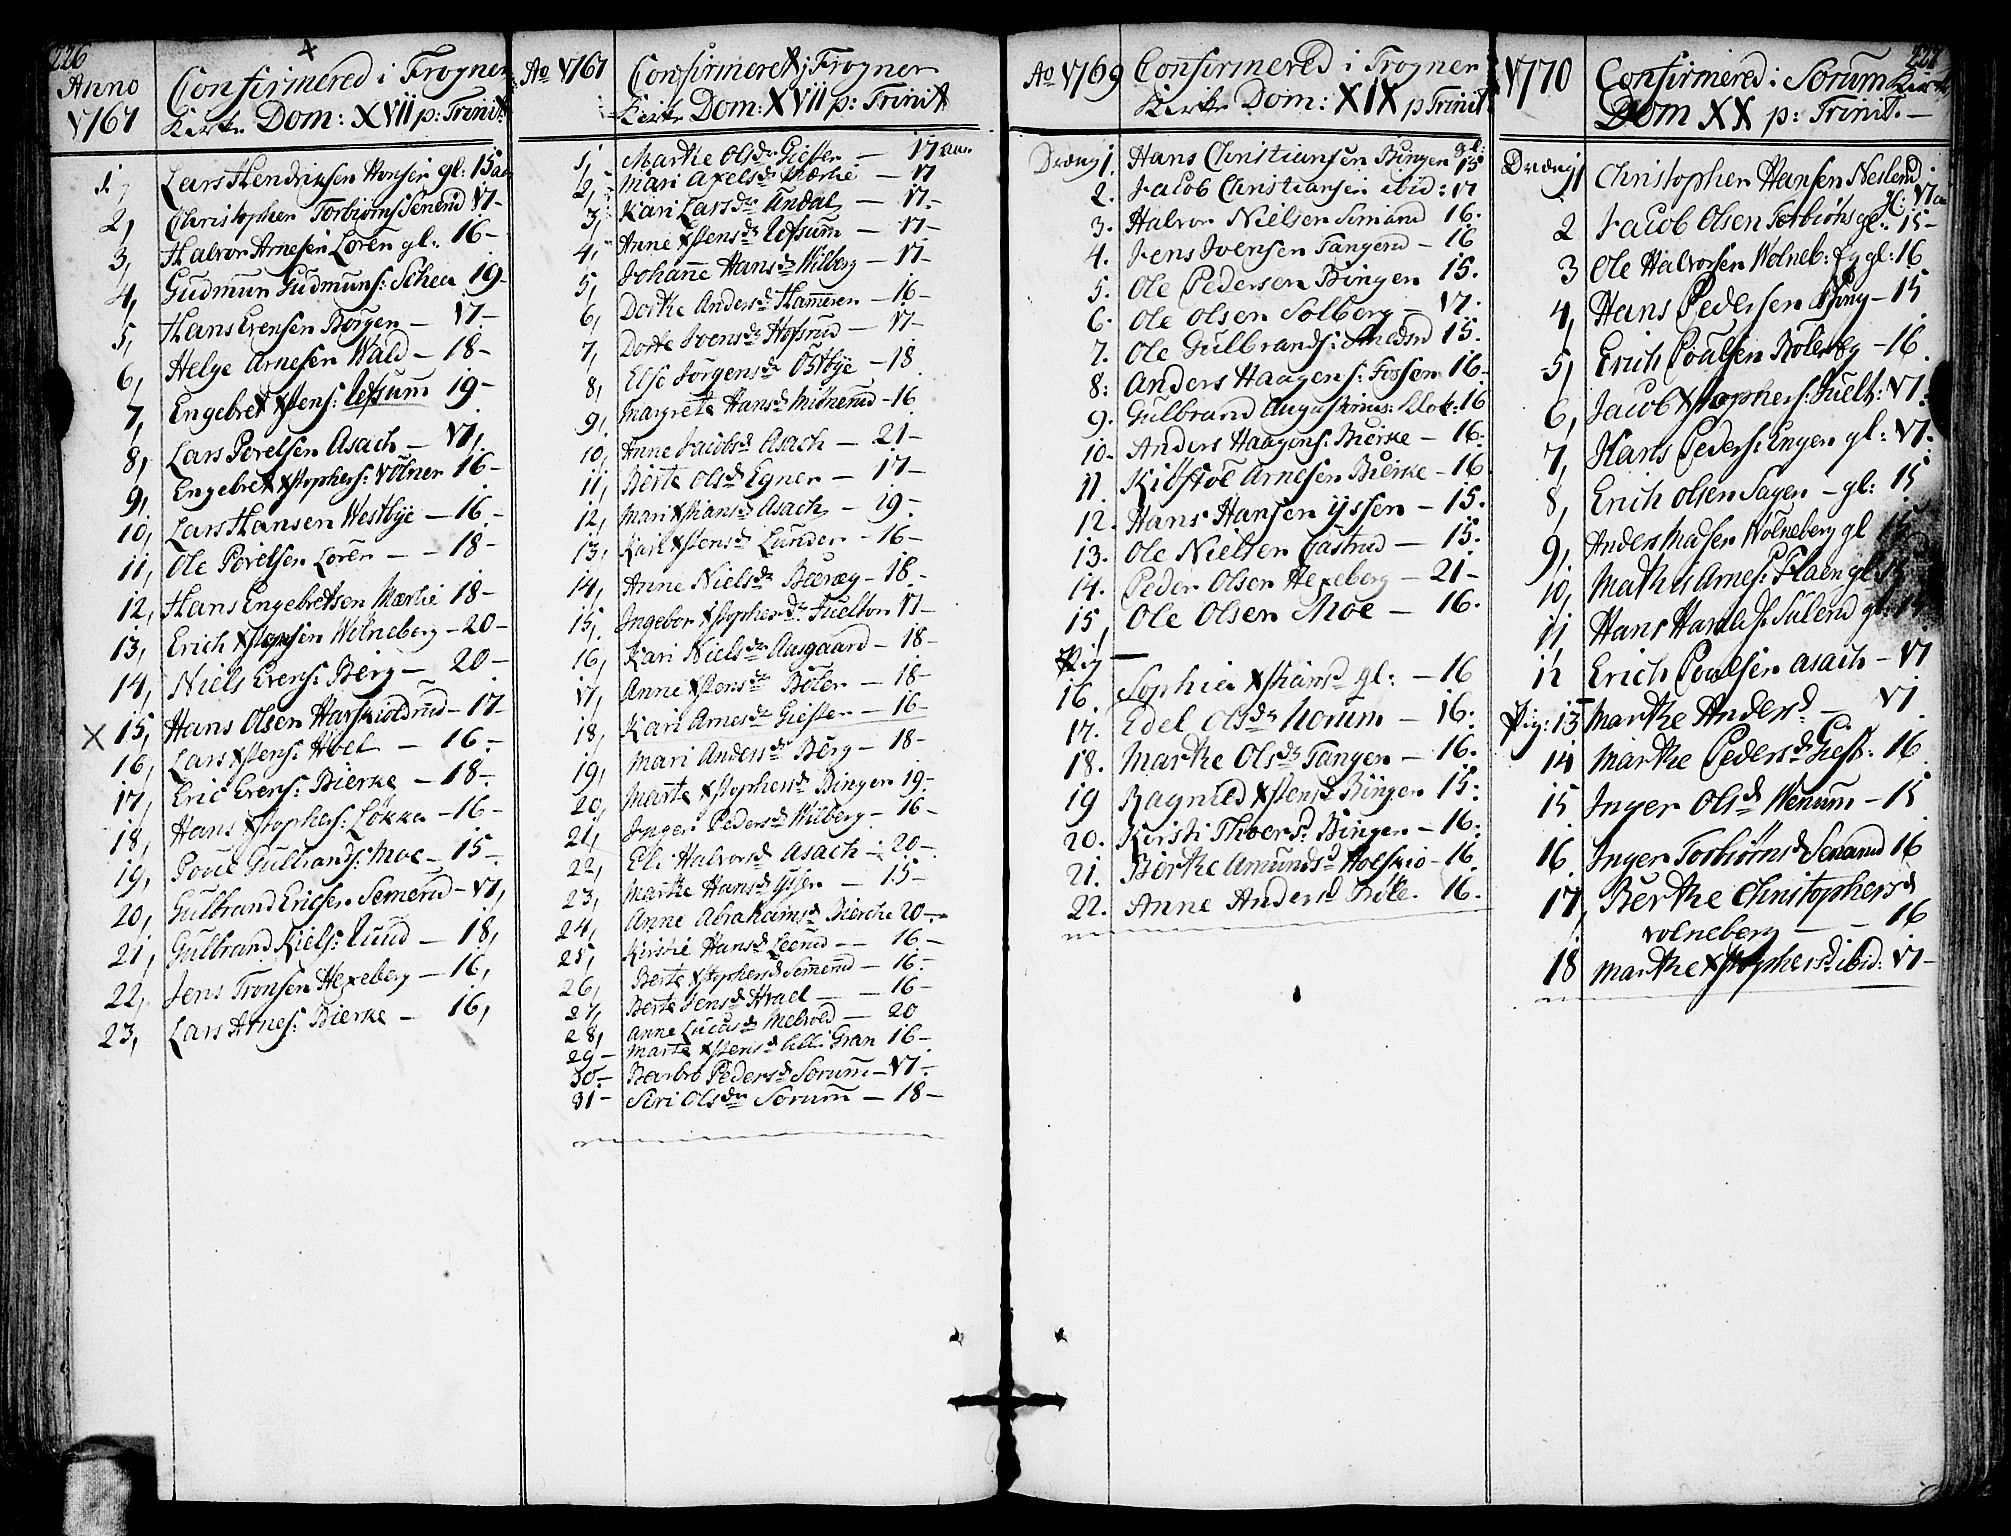 226
Anno 1767
Confirmered i Frogner
Kirke Dom: XVII p: Trinit:
1, Lars Hendrichsen gl: 15 aar
2, Christopher Torbiørns: Senerud 17-
3, Halvor Arnesen Loren gl: 16-
4, Gudmun Gudmuns: Schea 19-
5, Hans Evensen Borgen - 17-
6, Helge Arnesen Wald - 18-
7, Engebret Xstens: Uessum 19-
8, Lars Povelsen Asach - 17,
9, Engebret Xstophers: Volner 16-
10, Lars Hansen Westbye - 16-
11, Ole Povelsen Loren - - 18-
12, Hans Engebretsen Mærlie 18-
13, Erich Xstophsen Wolneberg - 20-
14, Niels Evens: Berg - 20-
X 15, Hans Olsen Harskioldrud - 17-
16, Lars Xstens: Hoel - 16-
17, Eric Evens: Bierke - 18-
18, Hans Xstophers: Løkka - 16-
19, Poul Gulbrands: Moe - 15-
20, Gulbrand Ericsen Semerud - 17,
21, Gulbrand Niels: Ruud - 18,
22, Jens Tronsen Hexeberg - 16,
23, Lars Arnes: Bierke - 16,
Ao 1767
Confirmeret i Frogner
Kirke Dom: XVII p: Trinit
1, Marthe Olsdr Giesten - 17 aar
2, Mari Axelsdr Mærlie - 17
3, Kari Larsdr Andal - 17-
4, Anne Xstensdr Uessum - 17-
5, Johanne Hansdr Wilberg - 17-
6, Dorthe Andersdr Hammeren - 16-
7, Dorte Ivensdr Hofsrud - 17-
8, Else Jørgensdr Østbye - 18
9, Margrete Hansd - 16
10, Anne Jacobsd Asach - 21-
11, Berte Olsd Egner - 17-
12, Mari Xstiansd Asach - 19-
13, Kari Xstensd Lunder - 16-
14, Anne Nielsdr - 18-
15, Ingebor Xstophersdr Fuelton 17-
16, Kari Nielsdr Aasgaard - 18-
17, Anne Xstensdr Boler - 18-
18, Kari Arnesdr Giesten - 16-
19, Mari Andersdr Berg - 18-
20, Marte Xstophersd Bingen 19-
21, Inger Pedersd Wilberg - 16-
22, Eli Halvorsd Asach - 20-
23, Marthe Hansd Yssen - 15-
24, Anne Abrahamsd Bierche 20-
25, Kirstie Hansd Leerud - - 16-
26, Berte Xstophersd Semerud - 16-
27, Berte Jensd Hvael - 16-
28, Anne Lucasdr Melvold - 20
29- Marte Xstensd Gran 16-
30- Barbro Pedersd Sorum - 17-
31- Siri Olsdr Sorum - 18-
Ao 1769
Confirmered i Frogner
Kirke Dom: XIX p Trinit
Dreng 1. Hans Christiansen Bingen gl: 15
2. Jacob Christiansen ibid: 17
3. Halvor Nielsen Simarud 16.
4. Jens Ivensen Tangerud - 16
5. Ole Pedersen Bingen 15.
6. Ole Olsen Solberg - 17.
7. Ole Gulbrands: 15.
8: Anders Haagens: Fossen 16-
9. Gulbrand Augustinus: Klok: 16
10. Anders Haagens: Bierke - 16.
11. Kittstoe Arnesen Bierke - 16
12. Hans Hansen Yssen - 15.
13. Ole Nielsen Gastrud - 15.
14. Peder Olsen Hexeberg - 21-
15, Ole Olsen Moe - 16.
Pig -
16. Sophia Xstiansd gl: - 16
17. Edel Olsdr Horum - 16.
18. Marthe Olsdr Tangen - 16.
19 Ragnild Xstensd Bingen 15.
20. Kirsti Thoersd Bingen - 16.
21. Berthe Amundsd Holskio - 16
22. Anne Andersd 16.
1770
222
Confirmered i Sorum Kirke
Dom XX p: Trinit. -
Dreng 1 Christopher Hansen Neslend gl: 17 aar
2 Jacob Olsen Torbiøhs gl: 15-
3 Ole Halvorsen Wolneb: gl: 16
4, Hans Pedersen - 15
5, Erich Poulsen Rolsrg - 16
6, Jacob Xstophers: Fuelt: 17.
7, Hans Peders: Engen gl: 17.
8, Erich Olsen Sagen - gl: 15
9, Anders Madsen Wolneberg gl 15
10, Mathis Arnes: Plaen gl: 15
11, Hans Sulerud gl:
12 Erich Poulsen Asach - 17
Pig: 13 Marthe Andersd - 17.
14 Marthe Pedersdr Giest: 16
15. Inger Olsd Wenum - 15
16. Inger Torbiørnsd Senerud 16
17, Berthe Christophersd
Volneberg - - 16
18 Marthe Xstophersd ibid: 17-